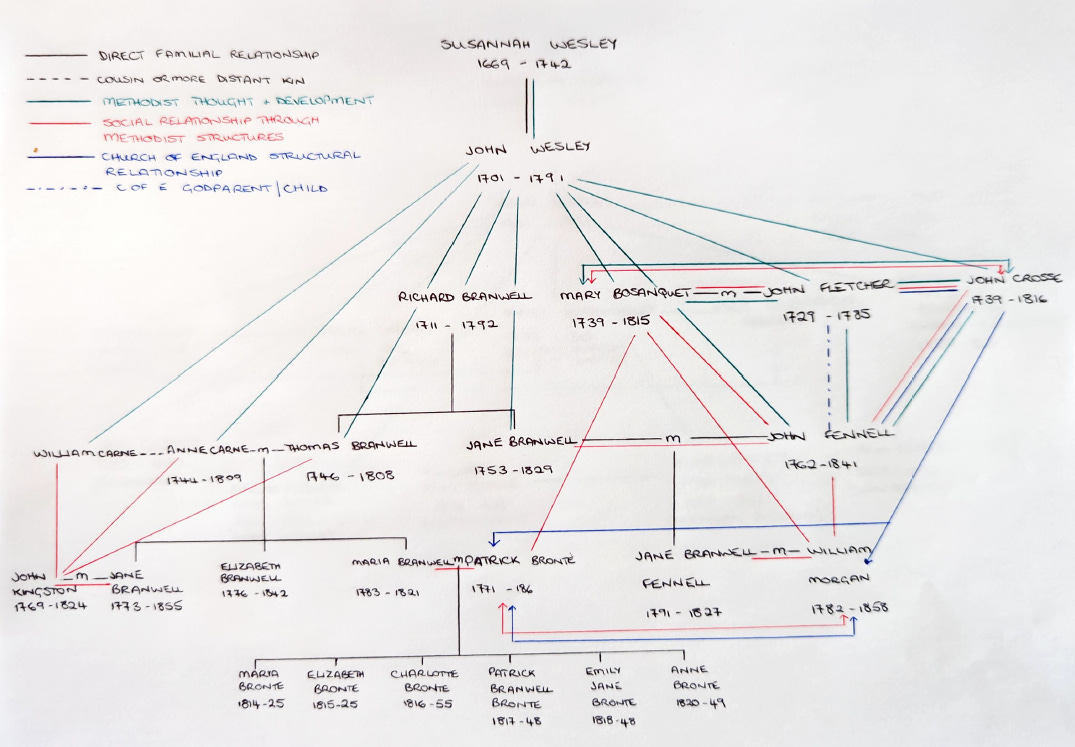 SUSANNAH WESLEY
1669 - 1742
DIRECT FAMILIAL RELATIONSHIP
COUSIN OR MORE DISTANT KIN
METHODIST THOUGHT + DEVELOPMENT
SOCIAL RELATIONSHIP THROUGH
METHODIST STRUCTURES
CHURCH OF ENGLAND STRUCTURAL
RELATIONSHIP
C OF E GODPARENT/CHILD
JOHN WESLEY
1701 - 1791
RICHARD BRANWELL
1711 - 1792
MARY BOSANQUET m JOHN FLETCHER
1739 - 1815
1729 - 1785
JOHN CROSSE
1739 - 1816
WILLIAM CARNE --- ANNE CARNE - m - THOMAS BRANWELL
1744 - 1809
1746 - 1808
JANE BRANWELL m JOHN FENNELL
1753 - 1829
1762 - 1841
JOHN - m - JANE
KINGSTON BRANWELL
1769 - 1824 1773 - 1855
ELIZABETH
BRANWELL
1776 - 1842
MARIA BRANWELL m PATRICK BRONTË
1783 - 1821
1771 - 186
JANE BRANWELL - m - WILLIAM
FENNELL
1791 - 1827
MORGAN
1782 - 1858
MARIA
BRONTE
1814-25
ELIZABETH
BRONTE
1815-25
CHARLOTTE
BRONTE
1816-55
PATRICK
BRANWELL
BRONTE
1817-48
EMILY
JANE
BRONTE
1818-48
ANNE
BRONTE
1820-49